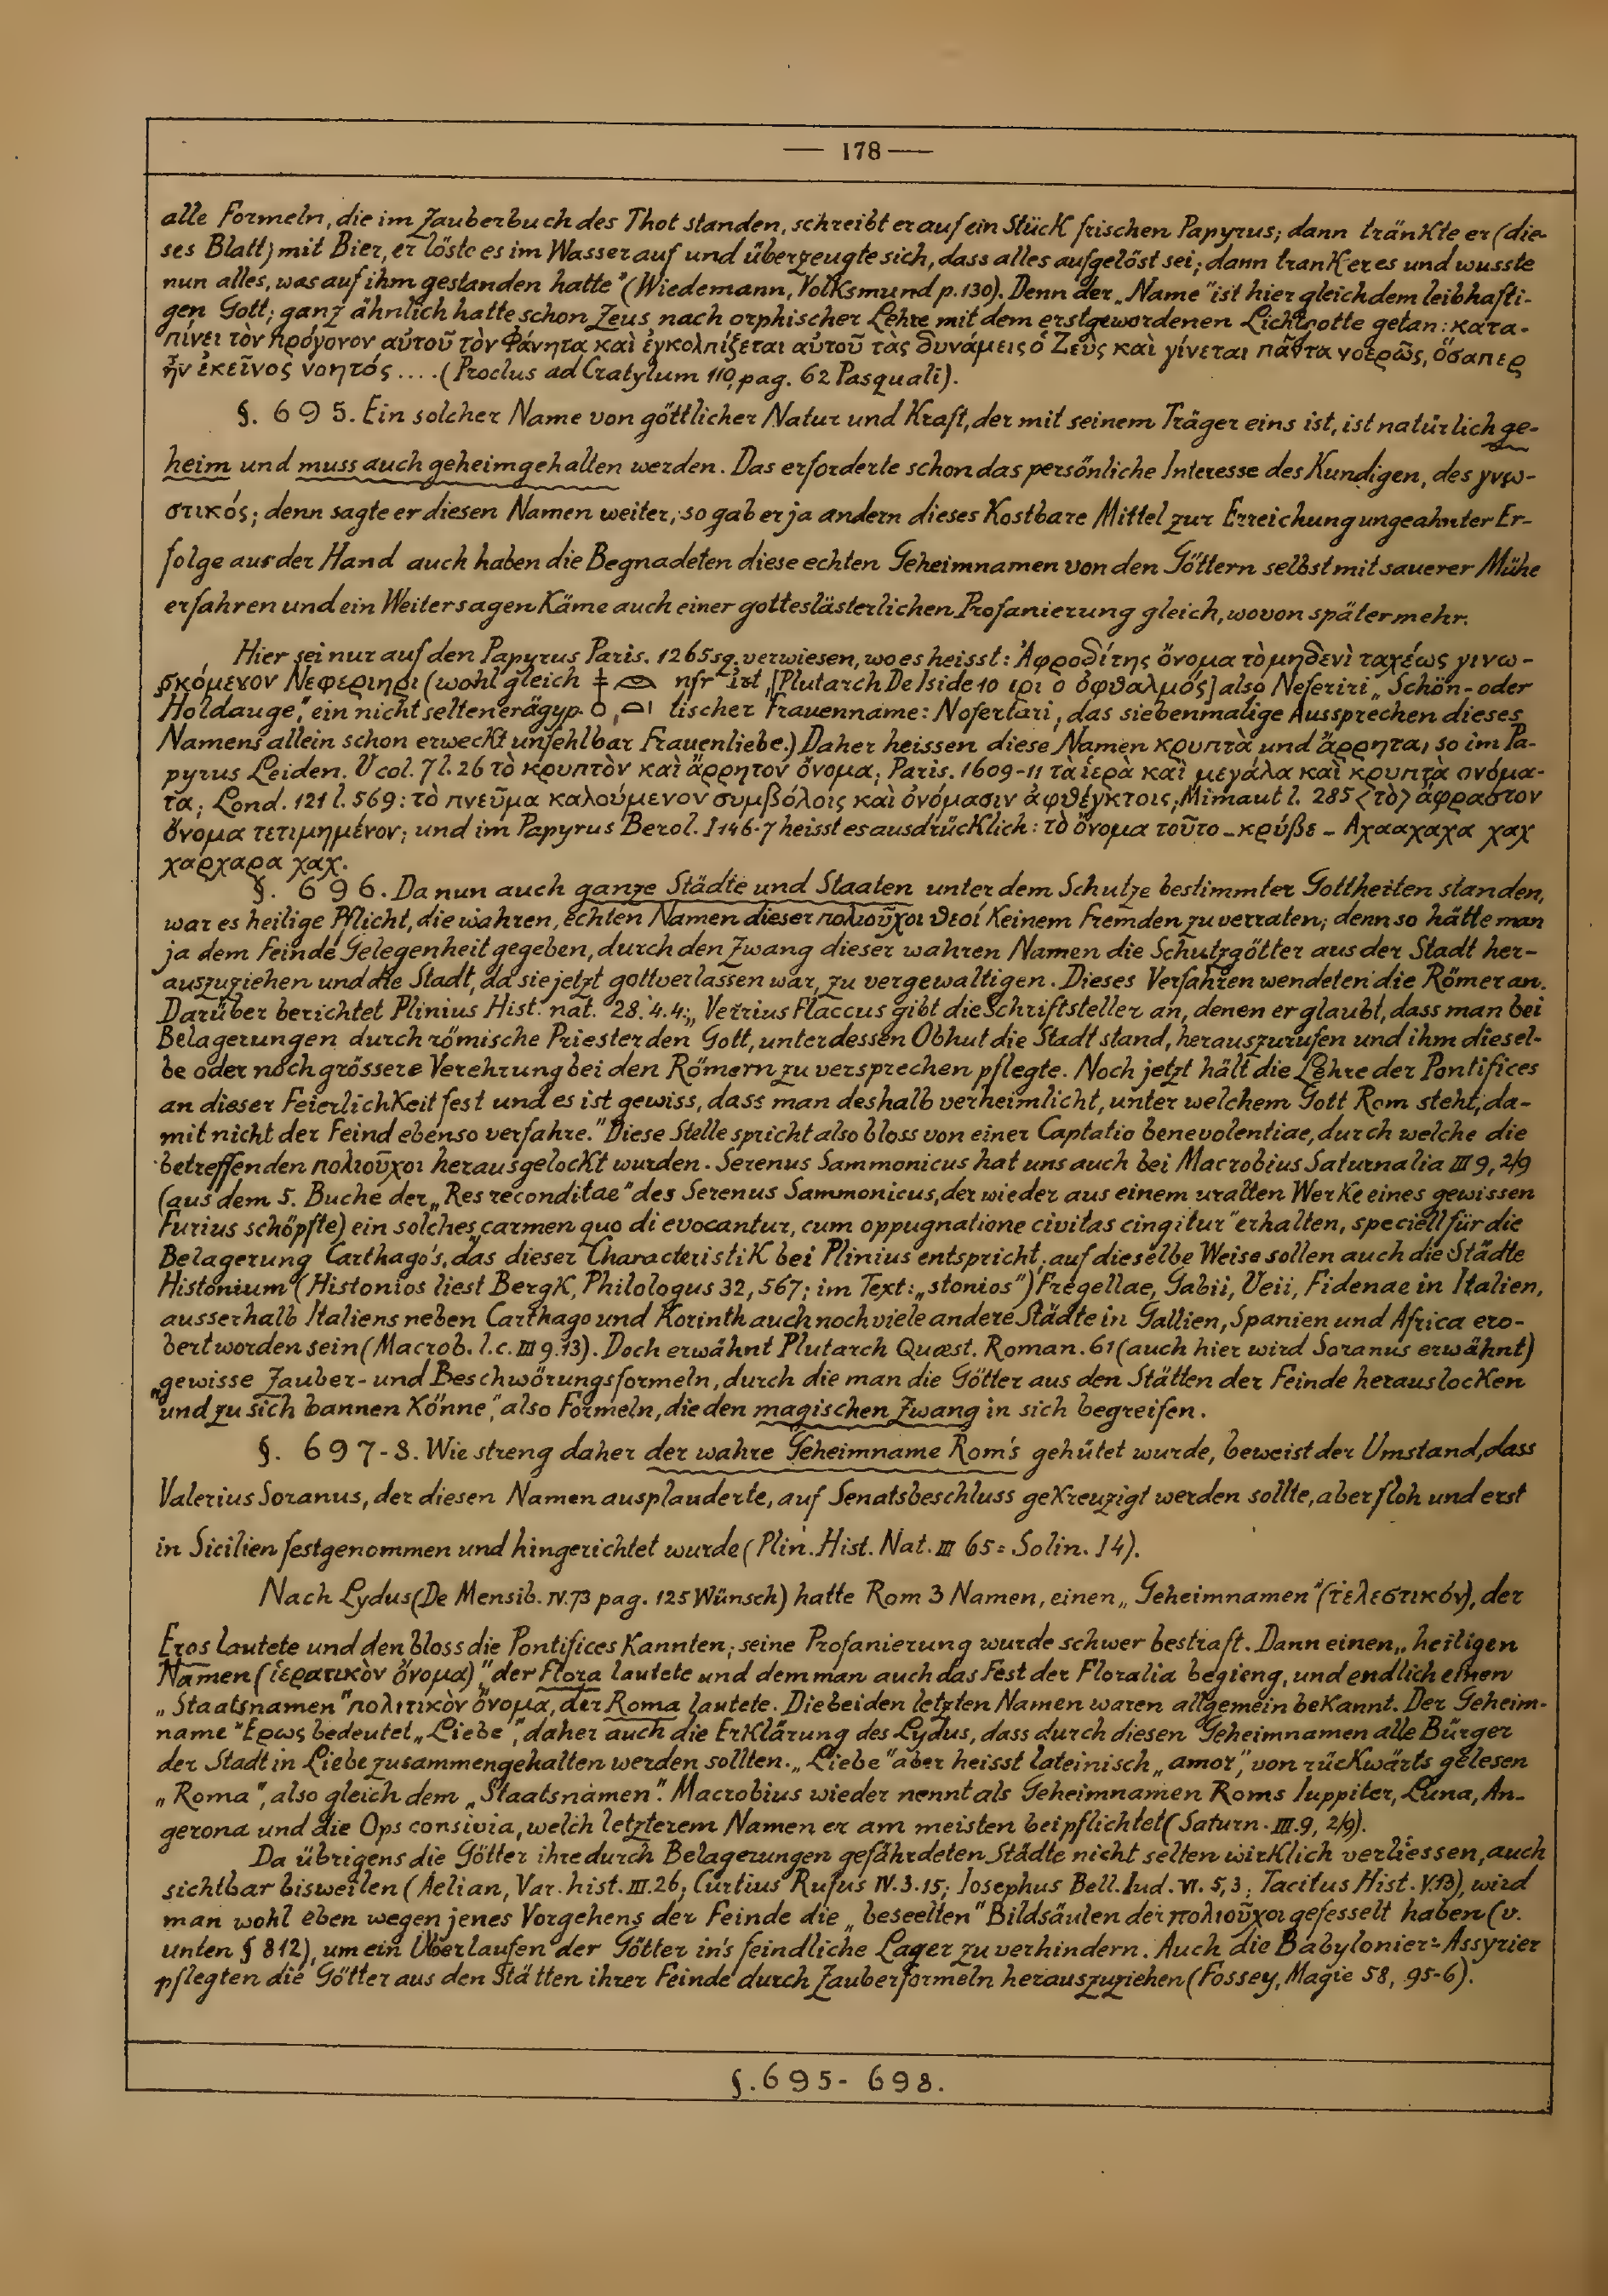 — 178 —
alle Formeln, die im Zauberbuch des Thot standen, schreibt er auf ein Stück frischen Papyrus; dann tränkte er (die-
ses Blatt) mit Bier, er löste es im Wasser auf und überzeugte sich, dass alles aufgelöst sei; dann trank er es und wusste
nun alles, was auf ihm gestanden hatte" (Wiedemann, Volksmund p. 130). Denn der „Name" ist hier gleich dem leibhafti-
gen Gott; ganz ähnlich hatte schon Zeus nach orphischer Lehre mit dem erstgewordenen Lichtgotte getan: κατα-
πίνει τὸν πρόγονον αὐτοῦ τὸν Φάνητα καὶ ἐγκολπίζεται αὐτοῦ τὰς δυνάμεις ὁ Ζεὺς καὶ γίνεται πάντα νοερῶς, ὅσαπερ
ἦν ἐκεῖνος νοητός .... (Proclus ad Cratylum 110, pag. 62 Pasquali).
§. 695. Ein solcher Name von göttlicher Natur und Kraft, der mit seinem Träger eins ist, ist natürlich ge-
heim und muss auch geheimgehalten werden. Das erforderte schon das persönliche Interesse des Kundigen, des γνω-
στικός; denn sagte er diesen Namen weiter, so gab er ja andern dieses kostbare Mittel zur Erreichung ungeahnter Er-
folge aus der Hand auch haben die Begnadeten diese echten Geheimnamen von den Göttern selbst mit sauerer Mühe
erfahren und ein Weitersagen käme auch einer gotteslästerlichen Profanierung gleich, wovon später mehr.
Hier sei nur auf den Papyrus Paris. 1265 sq. verwiesen, wo es heisst: Ἀφροδίτης ὄνομα τὸ μηδενὶ ταχέως γινω-
σκόμενον Νεφεριηρι (wohl gleich nfr irt, [Plutarch De Iside 10 ιρι ὁ ὀφθαλμός] also Neferiri „Schön- oder
Holdauge", ein nicht seltener ägyp- tischer Frauenname: Nofertari, das siebenmalige Aussprechen dieses
Namens allein schon erweckt unfehlbar Frauenliebe.) Daher heissen diese Namen κρυπτὰ und ἄρρητα, so im Pa-
pyrus Leiden. V col. 7 l. 26 τὸ κρυπτὸν καὶ ἄρρητον ὄνομα; Paris. 1609-11 τὰ ἱερὰ καὶ μεγάλα καὶ κρυπτὰ ὀνόμα-
τα; Lond. 121 l. 569: τὸ πνεῦμα καλούμενον συμβόλοις καὶ ὀνόμασιν ἀφθέγκτοις; Mimaut l. 285 <τὸ> ἄφραστον
ὄνομα τετιμημένον; und im Papyrus Berol. I 146-7 heisst es ausdrücklich: τὸ ὄνομα τοῦτο - κρύβε - Αχααχαχα χαχ
χαρχαρα χαχ.
§. 696. Da nun auch ganze Städte und Staaten unter dem Schutze bestimmter Gottheiten standen,
war es heilige Pflicht, die wahren, echten Namen dieser πολιοῦχοι θεοί keinem Fremden zu verraten; denn so hätte man
ja dem Feinde Gelegenheit gegeben, durch den Zwang dieser wahren Namen die Schutzgötter aus der Stadt her-
auszuziehen und die Stadt, da sie jetzt gottverlassen war, zu vergewaltigen. Dieses Verfahren wendeten die Römer an.
Darüber berichtet Plinius Hist. nat. 28. 4. 4: „Verrius Flaccus gibt die Schriftsteller an, denen er glaubt, dass man bei
Belagerungen durch römische Priester den Gott, unter dessen Obhut die Stadt stand, herauszurufen und ihm diesel-
be oder noch grössere Verehrung bei den Römern zu versprechen pflegte. Noch jetzt hält die Lehre der Pontifices
an dieser Feierlichkeit fest und es ist gewiss, dass man deshalb verheimlicht, unter welchem Gott Rom steht, da-
mit nicht der Feind ebenso verfahre." Diese Stelle spricht also bloss von einer Captatio benevolentiae, durch welche die
betreffenden πολιοῦχοι herausgelockt wurden. Serenus Sammonicus hat uns auch bei Macrobius Saturnalia III 9, 2/9
(aus dem 5. Buche der „Res reconditae" des Serenus Sammonicus, der wieder aus einem uralten Werke eines gewissen
Furius schöpfte) ein solches „carmen quo di evocantur, cum oppugnatione civitas cingitur" erhalten, speciell für die
Belagerung Carthago's, das dieser Characteristik bei Plinius entspricht; auf dieselbe Weise sollen auch die Städte
Histonium (Histonios liest Bergk, Philologus 32, 567; im Text: „stonios") Fregellae, Gabii, Veii, Fidenae in Italien,
ausserhalb Italiens neben Carthago und Korinth auch noch viele andere Städte in Gallien, Spanien und Africa ero-
bert worden sein (Macrob. l. c. III 9. 13). Doch erwähnt Plutarch Quæst. Roman. 61 (auch hier wird Soranus erwähnt)
„gewisse Zauber- und Beschwörungsformeln, durch die man die Götter aus den Stätten der Feinde herauslocken
und zu sich bannen könne", also Formeln, die den magischen Zwang in sich begreifen.
§. 697-8. Wie streng daher der wahre Geheimname Rom's gehütet wurde, beweist der Umstand, dass
Valerius Soranus, der diesen Namen ausplauderte, auf Senatsbeschluss gekreuzigt werden sollte, aber floh und erst
in Sicilien festgenommen und hingerichtet wurde (Plin. Hist. Nat. III 65 = Solin. I 4).
Nach Lydus (De Mensib. IV. 73 pag. 125 Wünsch) hatte Rom 3 Namen, einen „Geheimnamen" (τελεστικόν), der
Eros lautete und den bloss die Pontifices kannten; seine Profanierung wurde schwer bestraft. Dann einen „heiligen
Namen (ἱερατικὸν ὄνομα)", der Flora lautete und dem man auch das Fest der Floralia begieng, und endlich einen
„Staatsnamen" πολιτικὸν ὄνομα, der Roma lautete. Die beiden letzten Namen waren allgemein bekannt. Der Geheim-
name Ἔρως bedeutet „Liebe", daher auch die Erklärung des Lydus, dass durch diesen Geheimnamen alle Bürger
der Stadt in Liebe zusammengehalten werden sollten. „Liebe" aber heisst lateinisch „amor", von rückwärts gelesen
„Roma", also gleich dem „Staatsnamen". Macrobius wieder nennt als Geheimnamen Roms Iuppiter, Luna, An-
gerona und die Ops consivia, welch letzterem Namen er am meisten beipflichtet (Saturn. III. 9, 2/9).
Da übrigens die Götter ihre durch Belagerungen gefährdeten Städte nicht selten wirklich verliessen, auch
sichtbar bisweilen (Aelian, Var. hist. III. 26; Curtius Rufus IV. 3. 15; Iosephus Bell. Iud. VI. 5, 3; Tacitus Hist. V. 13), wird
man wohl eben wegen jenes Vorgehens der Feinde die „beseelten" Bildsäulen der πολιοῦχοι gefesselt haben (v.
unten § 812), um ein Überlaufen der Götter in's feindliche Lager zu verhindern. Auch die Babylonier-Assyrier
pflegten die Götter aus den Stätten ihrer Feinde durch Zauberformeln herauszuziehen (Fossey, Magie 58, 95-6).
§. 695- 698.